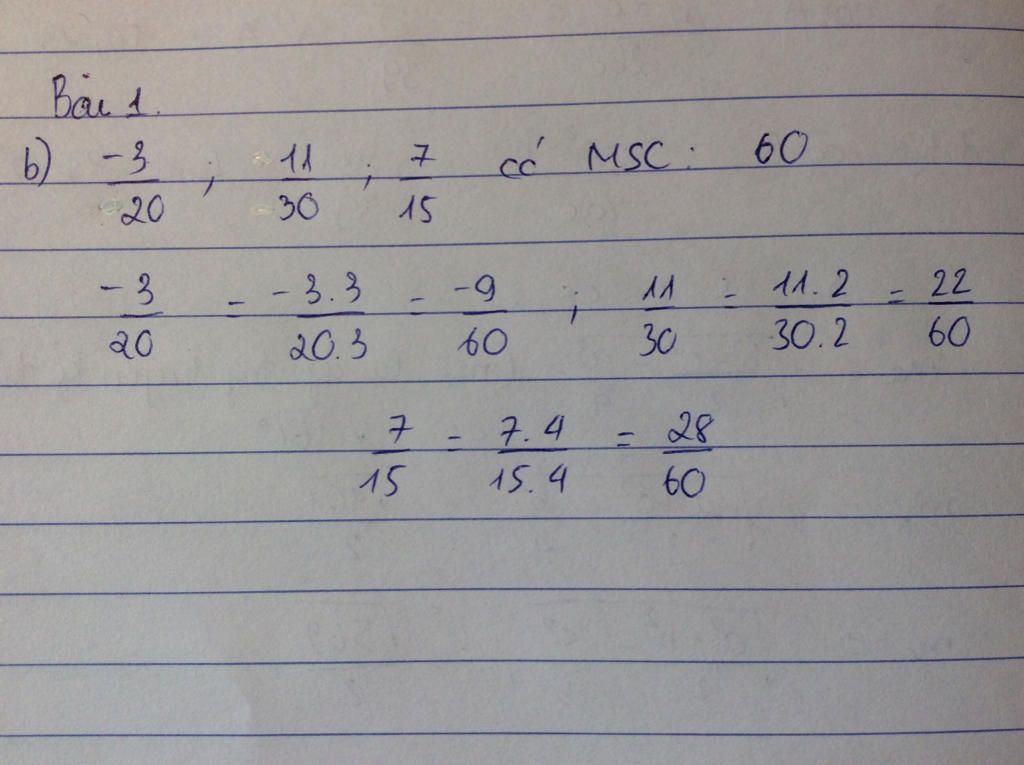 Bài 1.
b) -3/20 ; 11/30 ; 7/15 có MSC: 60
-3/20 = -3.3/20.3 = -9/60 ; 11/30 = 11.2/30.2 = 22/60
7/15 = 7.4/15.4 = 28/60